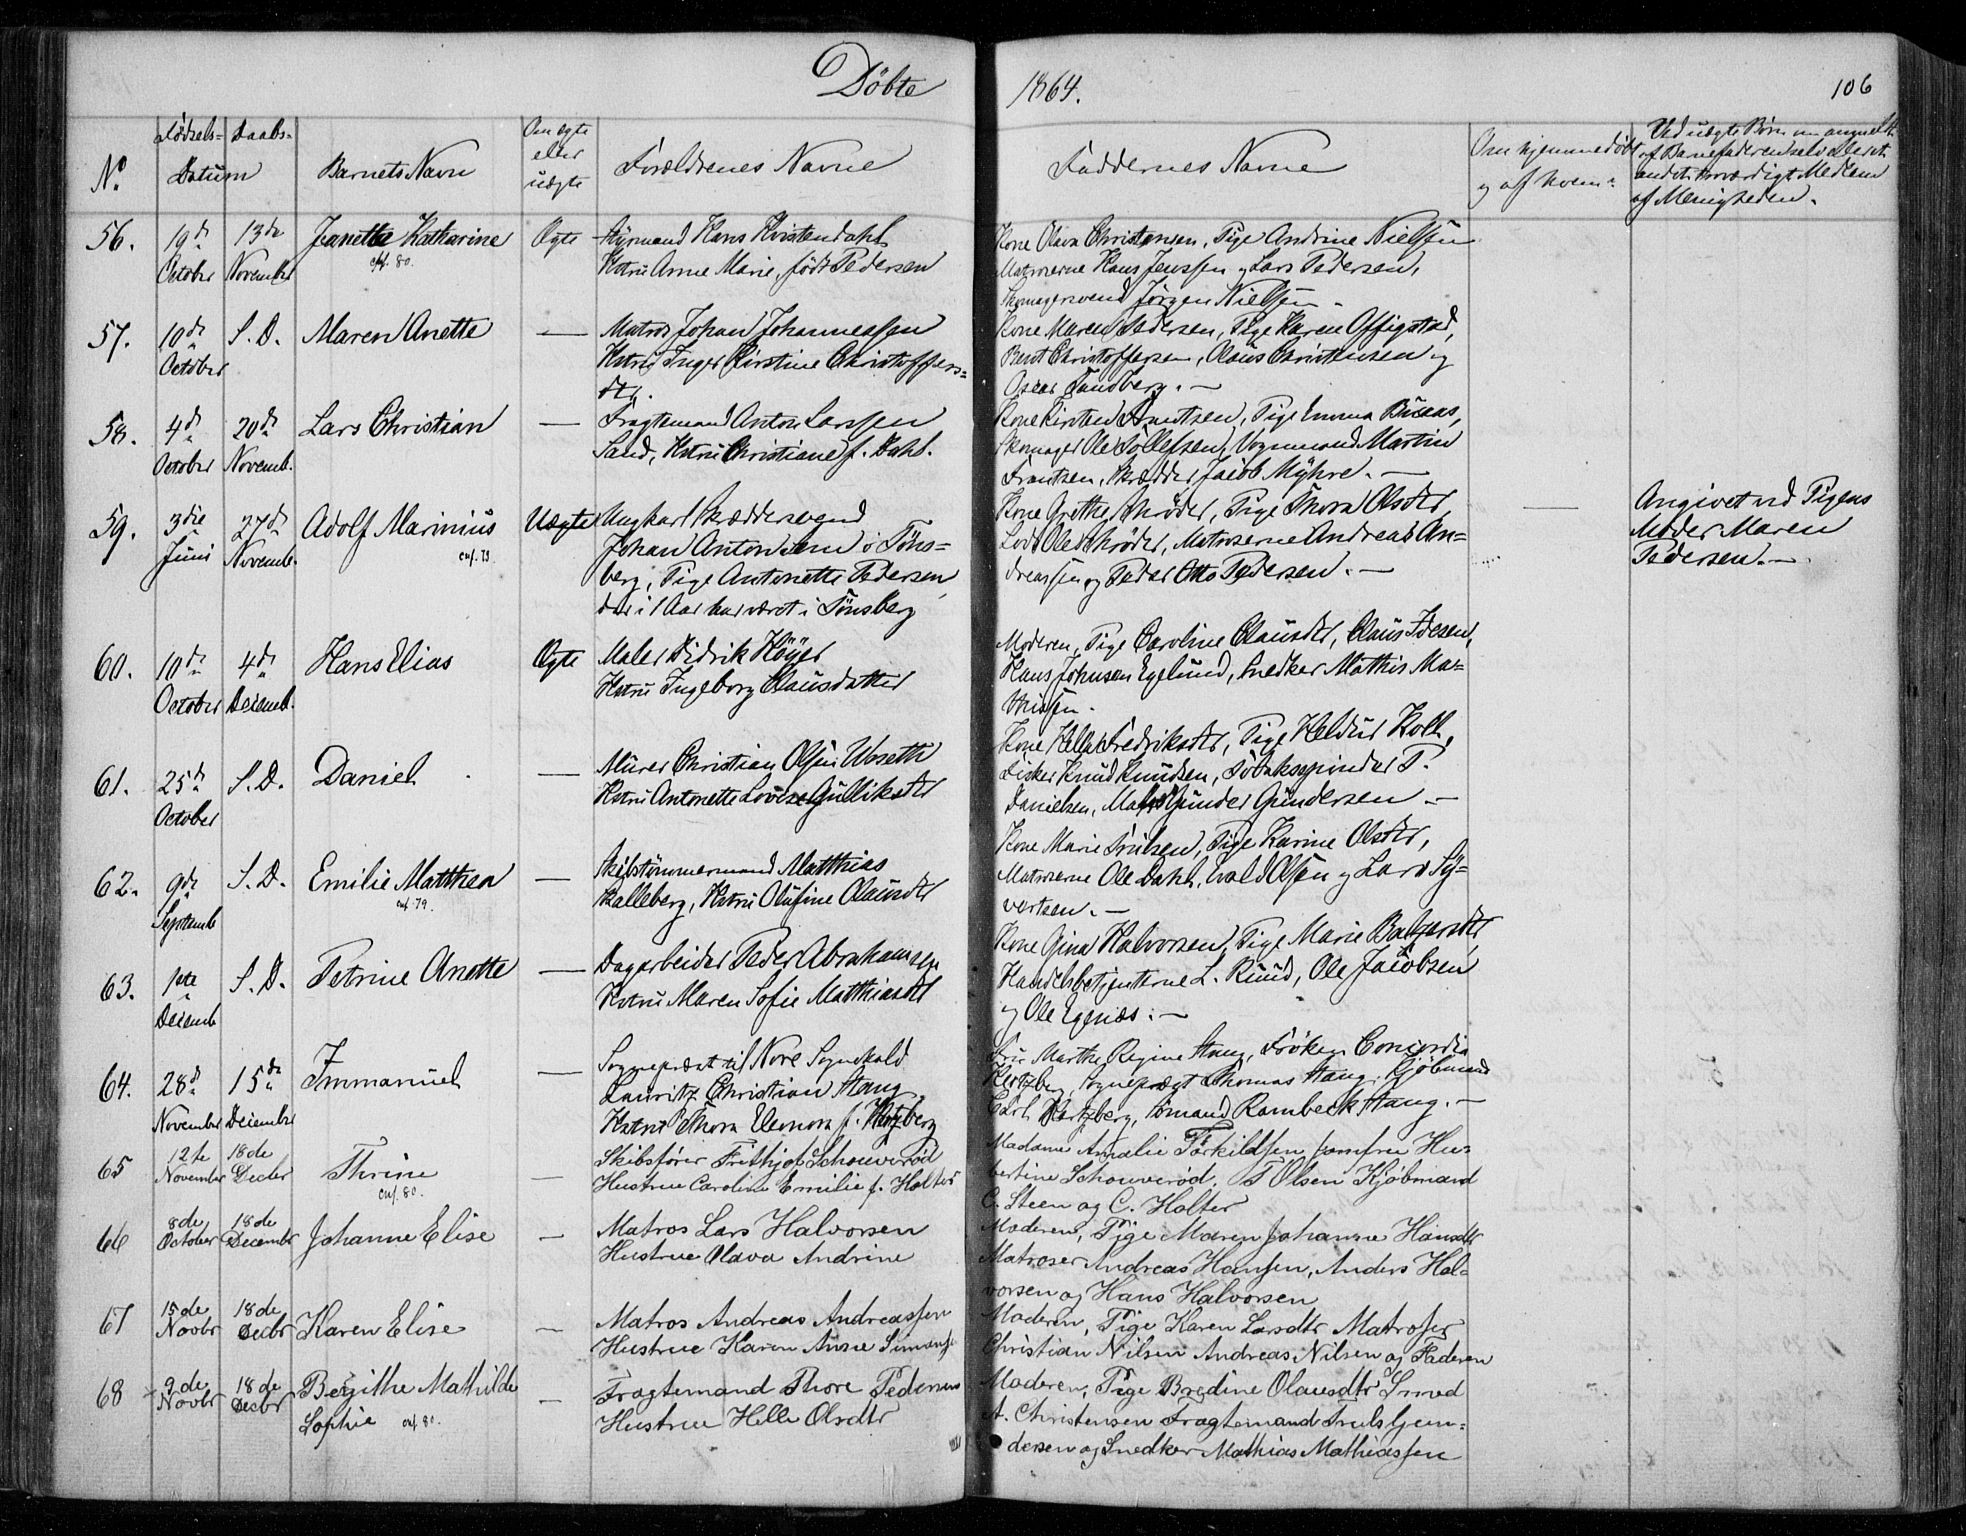 Döbte 1864. 106
No.
Fødsels- Daabs-
Datum
Barnets Navn
Om ægte
eller
uægte
Forældrenes Navne
Faddernes Navne
Om hjemmedöbt
og af hvem?
Ved uægte Börn om angivelt
af Barnefaderen selv eller et
andet troværdigt Medlem
af Menigheden.
56. 19de October 13de November Jeanette Katharine Ægte
cnf. 80.
Styrmand Hans Kristen Dahl
Hstru Anne Marie, født Pedersen
Kone Olava Christensen, Pige Andrine Nielsen
Matroserne Hans Jenssen og Lars Pedersen,
Skomagersvend Jörgen Nielsen.
57. 10de October S. D. Maren Anette —
Matros Johan Johannessen
Hstru Inger Kirstine Christoffers=
dtr.
Kone Maren Pedersen, Pige Karen Offigstad,
Bernt Christoffersen, Olaus Christensen og
Oscar Tandberg. —
58. 4de October 20de Novemb. Lars Christian —
Fragtemand Anton Larssen
Sand, Hstru Christiane f. Dahl.
Kone Kirsten Frantsen, Pige Emma Bucas,
Skomager Ole Tollefsen, Vognmand Martin
Frantsen, Skrædder Jacob Myhre. —
59. 3die Juni 27de Novemb. Adolf Marinius Uægte
cnf. 79.
Ungkarl Skræddersvend
Johan Anton i Töns=
berg, Pige Antonette Pedersen
der i 1 Aar har været i Tönsberg
Kone Grethe Schrøder, Pige Thora Olsdtr,
Lods Ole Schrøder, Matroserne Andreas An=
dreassen og Peder Otto Pedersen. —
—
Angivet ved Pigens
Moder Maren
Pedersen. —
60. 10de October 4de Decemb. Hans Elias Ægte
Maler Didrik Höyer
Hstru Ingeborg Clausdatter
Moderen, Pige Caroline Clausdtr, Claus Ibesen,
Hans Johnsen Egelund, Snedker Mathis Ma=
thisen.
61. 25de October S. D. Daniel —
Murer Christian Olsen Unseth
Hstru Antonette Lovise Gulliksdtr
Kone Helle Fredriksdtr, Pige Heldur Holt,
Fisker Knud Knudsen, Tobakspinder P.
Danielsen, Matros Gunder Gundersen —
62. 9de Septemb S. D. Emilie Matthea —
cnf. 79.
Skibstömmermand Matthias
Kalleberg, Hstru Olufine Olausdtr
Kone Marie Trulsen, Pige Karine Olsdtr,
Matroserne Ole Dahl, Evald Olsen og Lars Sy=
vertsen. —
63. 1ste Decemb S. D. Petrine Anette —
Dagarbeider Peder Abrahamsen
Hstru Maren Sofie Matthiasdtr
Kone Gina Halvorsen, Pige Marie Balzersdtr
Handelsbetjenterne L. Ruud, Ole Jacobsen
og Ole Egenæs. —
64. 28de November 15de December Immanuel —
Sogneprest til Nore Sognekald
Lauritz Christian Stang
Hstru Thora Eleonora f. Hertzberg
Fru Marthe Regine Stang, Fröken Concordia
Hertzberg, Sogneprest Thomas Stang, Kjöbmand
Carl Hertzberg, Sömand Rambeck Stang. —
65 12te November 18de Decbr Thrine —
cnf. 80.
Skibsfører Frithjof Schouverød
Hustrue Caroline Emilie f. Holter
Madame Amalie Torkildsen, Jomfru Hu=
bertine Schouverød. T Olsen Kjøbmand
C. Steen og C. Holter
66 8de October 18de Decembr Johanne Elise —
Matros Lars Halvorsen
Hustrue Olava Andrine
Moderen, Pige Maren Johanne Hansdtr
Matroser Andreas Hansen, Anders Hal=
vorsen og Hans Halvorsen
67 15de Novbr 18de Decbr Karen Elise —
Matros Andreas Andreassen
Hustrue Karen Anne Simens
Moderen, Pige Karen Larsdtr Matroser
Christian Nilsen Andreas Nilsen og Faderen
68 9de Novbr 18de Decbr Bergithe Mathilde —
Sophie cnf. 80.
Fragtemand Thore Pedersen
Hustrue Helle Olsdtr
Moderen, Pige Bredine Olausdtr Smed
A. Christensen Fragtemand Truls Gun=
dersen og Snedker Mathias Mathiassen